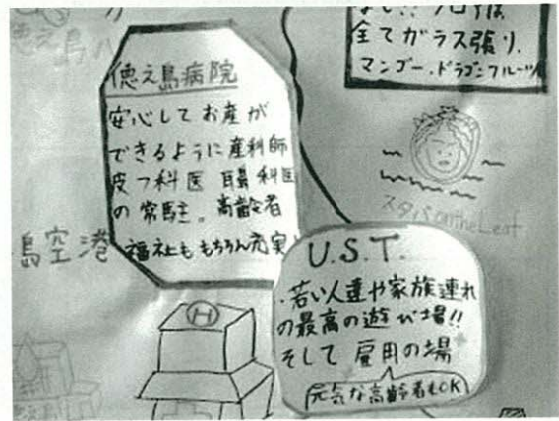 徳之島病院
安心してお産が
できるように産科師
皮フ科医 耳鼻科医
の常駐。高齢者
福祉ももちろん充実!
全てガラス張り、
マンゴー、ドラゴンフルーツ
スタバ on the Leaf
島空港
U.S.T.
・若い人達や家族連れ
の最高の遊び場!!
そして 雇用の場
元気な高齢者もOK
H